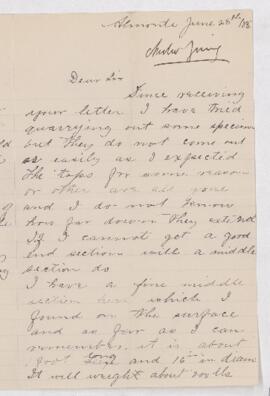 Almonte June 28th /08
Dear Sir
Since receiving
your letter I have tried
quarrying out some specimens
but they do not come out
as easily as I expected
the tops for some reason
or other are all gone
and I do not know
how far down they extend
If I cannot get a good
end section will a middle
section do
I have a fine middle
section here which I
found on the surface
and as far as I can
remember it is about
1 foot long and 16 in diam
It will weight about